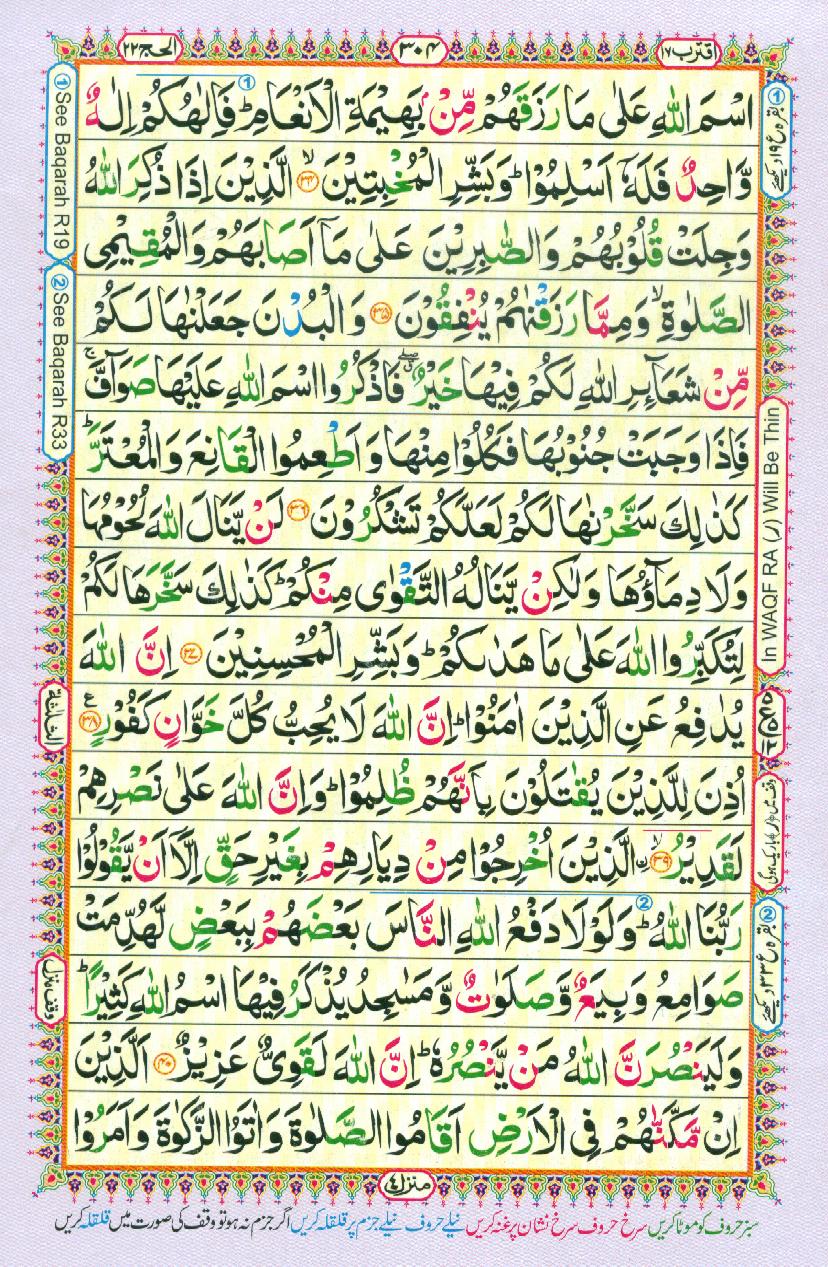 اقترب ١٧
٣٠٤
الحج ٢٢
اسْمَ اللّٰهِ عَلٰى مَا رَزَقَهُمْ مِّنْۢ بَهِيْمَةِ الْاَنْعَامِ ؕ فَاِلٰهُكُمْ اِلٰهٌ
وَّاحِدٌ فَلَهٗۤ اَسْلِمُوْا ؕ وَبَشِّرِ الْمُخْبِتِيْنَ ۙ﴿۳۴﴾ الَّذِيْنَ اِذَا ذُكِرَ اللّٰهُ
وَجِلَتْ قُلُوْبُهُمْ وَالصّٰبِرِيْنَ عَلٰى مَاۤ اَصَابَهُمْ وَالْمُقِيْمِى
الصَّلٰوةِ ۙ وَمِمَّا رَزَقْنٰهُمْ يُنْفِقُوْنَ ﴿۳۵﴾ وَالْبُدْنَ جَعَلْنٰهَا لَكُمْ
مِّنْ شَعَآئِرِ اللّٰهِ لَكُمْ فِيْهَا خَيْرٌ ۖۗ فَاذْكُرُوا اسْمَ اللّٰهِ عَلَيْهَا صَوَآفَّ ۚ
فَاِذَا وَجَبَتْ جُنُوْبُهَا فَكُلُوْا مِنْهَا وَاَطْعِمُوا الْقَانِعَ وَالْمُعْتَرَّ ؕ
كَذٰلِكَ سَخَّرْنٰهَا لَكُمْ لَعَلَّكُمْ تَشْكُرُوْنَ ﴿۳۶﴾ لَنْ يَّنَالَ اللّٰهَ لُحُوْمُهَا
وَلَا دِمَآؤُهَا وَلٰكِنْ يَّنَالُهُ التَّقْوٰى مِنْكُمْ ؕ كَذٰلِكَ سَخَّرَهَا لَكُمْ
لِتُكَبِّرُوا اللّٰهَ عَلٰى مَا هَدٰىكُمْ ؕ وَبَشِّرِ الْمُحْسِنِيْنَ ﴿۳۷﴾ اِنَّ اللّٰهَ
يُدٰفِعُ عَنِ الَّذِيْنَ اٰمَنُوْا ؕ اِنَّ اللّٰهَ لَا يُحِبُّ كُلَّ خَوَّانٍ كَفُوْرٍ ﴿۳۸﴾ ع
اُذِنَ لِلَّذِيْنَ يُقٰتَلُوْنَ بِاَنَّهُمْ ظُلِمُوْا ؕ وَاِنَّ اللّٰهَ عَلٰى نَصْرِهِمْ
لَقَدِيْرُ ۙ﴿۳۹﴾ ۨالَّذِيْنَ اُخْرِجُوْا مِنْ دِيَارِهِمْ بِغَيْرِ حَقٍّ اِلَّاۤ اَنْ يَّقُوْلُوْا
رَبُّنَا اللّٰهُ ؕ وَلَوْلَا دَفْعُ اللّٰهِ النَّاسَ بَعْضَهُمْ بِبَعْضٍ لَّهُدِّمَتْ
صَوَامِعُ وَبِيَعٌ وَّصَلَوٰتٌ وَّمَسٰجِدُ يُذْكَرُ فِيْهَا اسْمُ اللّٰهِ كَثِيْرًا ؕ
وَلَيَنْصُرَنَّ اللّٰهُ مَنْ يَّنْصُرُهٗ ؕ اِنَّ اللّٰهَ لَقَوِىٌّ عَزِيْزٌ ﴿۴۰﴾ اَلَّذِيْنَ
اِنْ مَّكَّنّٰهُمْ فِى الْاَرْضِ اَقَامُوا الصَّلٰوةَ وَاٰتَوُا الزَّكٰوةَ وَاَمَرُوْا
منزل ٤
سبز حروف کو موٹا کریں سرخ حروف سرخ نشان پر غنہ کریں نیلے حروف نیلے جزم پر قلقلہ کریں اگر جزم نہ ہو تو وقف کی صورت میں قلقلہ کریں
① See Baqarah R19
② See Baqarah R33
الثلثة
وقف منزل
① بقرہ ع ١٩ دیکھئے
In WAQF RA (ر) Will Be Thin
② بقرہ ع ٣٣ دیکھئے